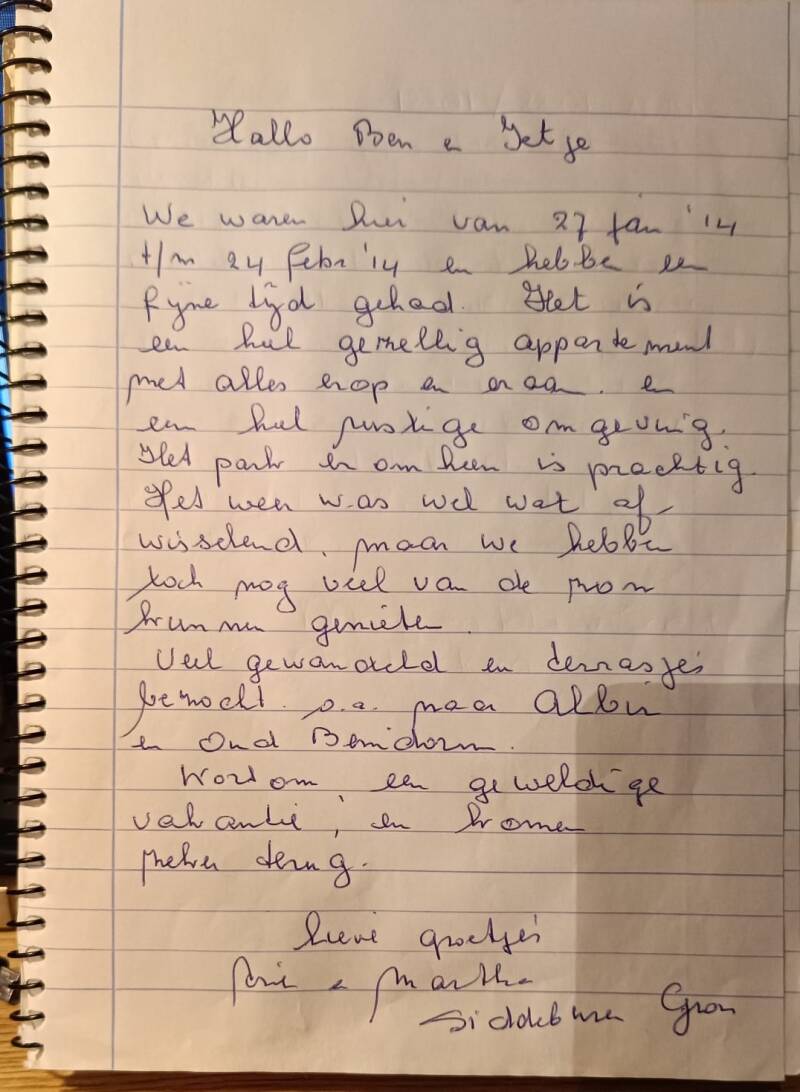 Hallo Ben en Jetje
We waren hier van 27 jan '14
t/m 24 febr '14 en hebben een
fijne tijd gehad. Het is
een heel gezellig appartement
met alles erop en eraan. en
een heel rustige omgeving.
Het park er om heen is prachtig.
Het weer was wel wat af-
wisselend, maar we hebben
toch nog veel van de zon
kunnen genieten.
Veel gewandeld en terrasjes
bezocht. o.a. naar Albir
en Oud Benidorm.
Kortom, een geweldige
vakantie, en komen
zeker terug.
Lieve groetjes
en Martha
Siddeburen Gron